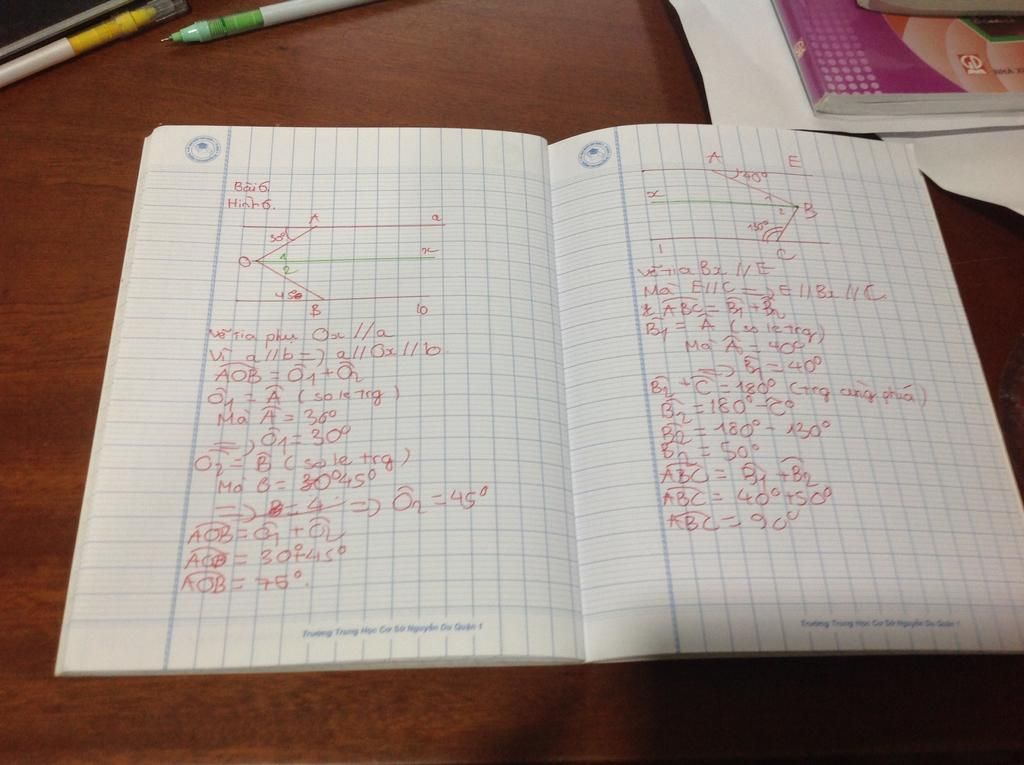 Bài 6.
Hình 6.
A
a
30°
O
1
2
x
45°
B
b
Vẽ tia phụ Ox // a
Vì a // b => a // Ox // b.
AOB = O1 + O2
O1 = A (so le trg)
Mà A = 30°
=> O1 = 30°
O2 = B (so le trg)
Mà B = 45°
=> O2 = 45°
AOB = O1 + O2
AOB = 30°+45°
AOB = 75°.
Trường Trung Học Cơ Sở Nguyễn Du Quận 1
A
E
40°
x
1
2
B
130°
1
C
Vẽ tia Bx // E
Mà E // C => E // Bx // C
ABC = B1 + B2
B1 = A (so le trg)
Mà A = 40°
=> B1 = 40°
B2 + C = 180° (trg cùng phía)
B2 = 180° - C°
B2 = 180° - 130°
B2 = 50°
ABC = B1 + B2
ABC = 40° + 50°
ABC = 90°
Trường Trung Học Cơ Sở Nguyễn Du Quận 1